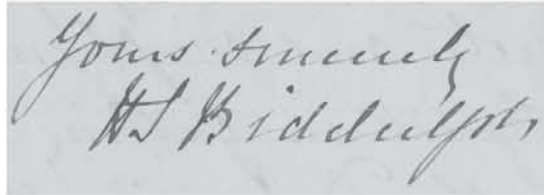 Yours sincerely
H S Biddulph